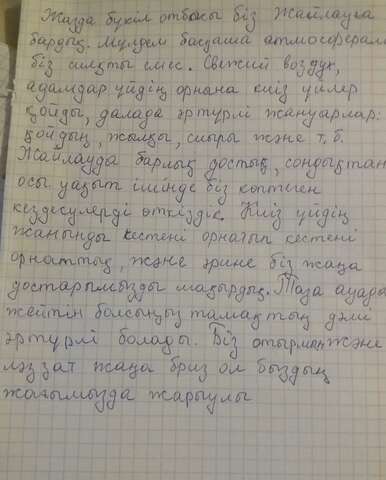 Жазда бүкіл отбасы біз Жайлауға
бардық. Мүлдем басқаша атмосфера
біз сияқты емес. Свежий воздух,
адамдар үйдің орнана киіз үйлер
қойды, далада әртүрлі жануарлар:
қойдың, жылқы, сиыры және т. б.
Жайлауда барлық достық, сондықтан
осы уақыт ішінде біз көптеген
кездесулерді өткіздік. Киіз үйдің
жанынды кестені орнатып кестені
орнаттық, және әрине біз жаңа
достарымызды шақырдық. Таза ауада
жейтін болсыңыз тамақтың дәмі
әртүрлі болады. Біз отырмын және
ләззат жаңа бриз ол быздың
жағымызда жарыулы